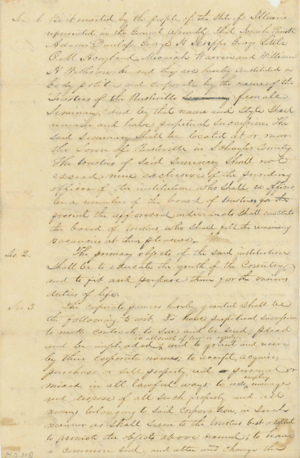 Sec 1. Be it enacted by the people of the State of Illinois
represented in the General Assembly That
Adams Dunlap George H
William
H and they are hereby constituted a
body politic and corporate by the name of the
Trustees of the Rushville Female
Seminary, and by that name and style shall
remain and have perpetual succession The
said Seminary shall be located at or near
the Town of Rushville in Schuyler County
The trustees of said Seminary shall not
exceed nine exclusive of the presiding
officer of the institution who shall ex officio
be a member of the board of trustees for the
present the aforesaid individuals shall constitute
the board of trustees who shall fill the remaining
vacancies at their pleasure
Sec 2. The primary objects of the said institution
shall be to educate the youth of the Country
and to fit and prepare them for the various
duties of life.
Sec 3 The corporate powers hereby granted shall be
the following to wit To have perpetual succession
to make contracts to sue and be sued, plead
and be impleaded
in all courts of law
and to grant and receive
by their corporate name, to accept acquire
purchase or sell property real personal or
mixed in all lawful ways to use manage
and dispose of all such property and all
money belonging to said corporation, in such
manner as shall seem to the trustees best adapted
to promote the objects above named; to have
a common seal, and alter and change the